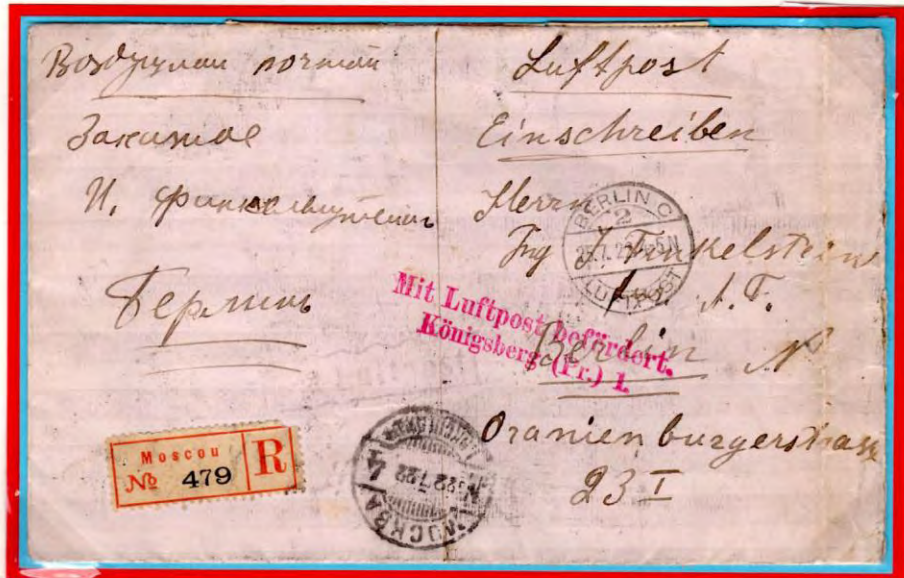 Воздушной почтой
Заказное
И. Финкельштейн
Берлинъ
Luftpost
Einschreiben
Herrn
Ing J. Finkelstein
A.T.
Berlin N
Oranienburgerstrasse
23 I
BERLIN C
2
25.7.22
LUFTPOST
Mit Luftpost befördert.
Königsberg (Pr.) 1.
Moscou
№ 479
R
МОСКВА
22.7.22